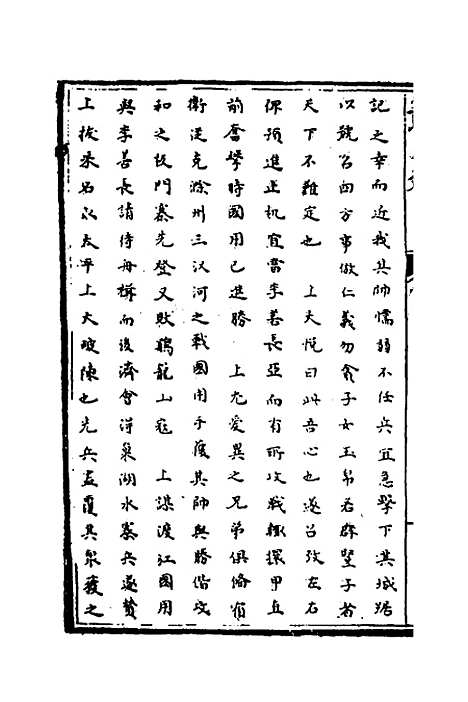 記之幸而近我其帥懦弱不任兵宜急擊下其城踞
以號召四方事倣仁義勿貪子女玉帛若群豎子者
天下不難定也　上大悅曰此吾心也遂召致左右
俾預進止机宜當李善長亞而有所攻戰輒擐甲直
前奮擊時國用已進勝　上尤愛異之兄弟俱備宿
衛從克滁州三汊河之戰國用手馘其帥與勝偕攻
和之板門寨先登又敗鷄龍山寇　上謀渡江國用
與李善長請待舟楫而後濟會得巢湖水寨兵遂贊
上拔采石取太平上大破陳也先兵盡覆其衆獲之